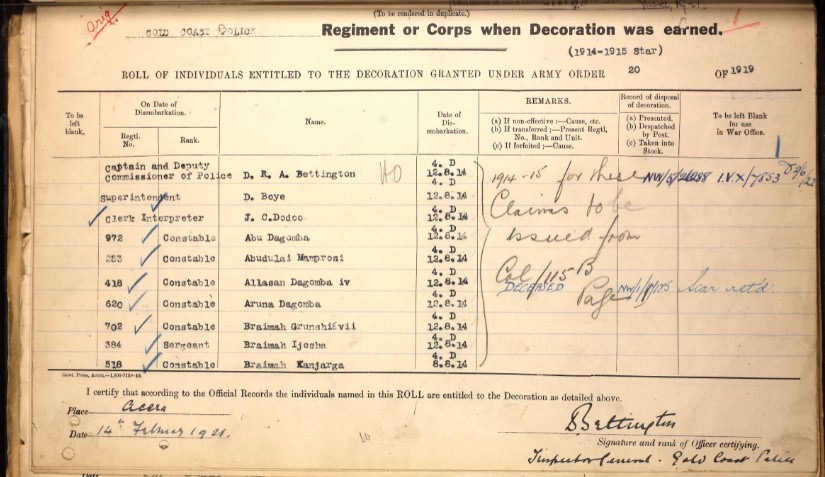 (To be rendered in duplicate.)
Orig
GOLD COAST POLICE Regiment or Corps when Decoration was earned.
(1914-1915 Star)
ROLL OF INDIVIDUALS ENTITLED TO THE DECORATION GRANTED UNDER ARMY ORDER 20 OF 1919
To be left blank.
On Date of Disembarkation.
Regtl. No.
Rank.
Name.
Date of Disembarkation.
REMARKS.
(a) If non-effective :—Cause, etc.
(b) If transferred ;—Present Regtl, No., Rank and Unit.
(c) If forfeited ;—Cause.
Record of disposal of decoration.
(a) Presented.
(b) Despatched by Post.
(c) Taken into Stock.
To be left Blank for use in War Office.
Captain and Deputy
Commissioner of Police D. R. A. Bettington HO 4. D 12.8.14
Superintendent D. Boye 4. D 12.8.14
Clerk Interpreter J. C. Dodoo 4. D 12.8.14
972 Constable Abu Dagomba 4. D 12.8.14
283 Constable Abudulai Mamprosi 4. D 12.8.14
418 Constable Allasan Dagomba iv 4. D 12.8.14
620 Constable Aruna Dagomba 4. D 12.8.14
702 Constable Braimah Grunshi vii 4. D 12.8.14
384 Sergeant Braimah Ijesha 4. D 12.8.14
518 Constable Braimah Kanjarga 4. D 8.8.14
1914-15 for these
Claims to be
issued from
Col/115 B
Page
NW/5/ I.V.X/7853
DECEASED
Star ret'd
Govt. Press, Accra.
I certify that according to the Official Records the individuals named in this ROLL are entitled to the Decoration as detailed above.
Place Accra
Date 14th February 1921.
10
Bettington
Signature and rank of Officer certifying.
Inspector General - Gold Coast Police